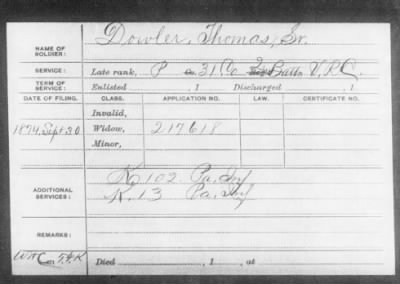 NAME OF SOLDIER: Dowler, Thomas, Sr.
SERVICE: Late rank, P Co. 31 Co 2 Batt'n V.R.C.
TERM OF SERVICE: Enlisted , 1 Discharged , 1
DATE OF FILING. CLASS. APPLICATION NO. LAW. CERTIFICATE NO.
Invalid,
1874, Sept 30 Widow, 217618
Minor,
ADDITIONAL SERVICES: K 102 Pa. Inf
K. 13 Pa. Inf
REMARKS:
Died , 1 , at